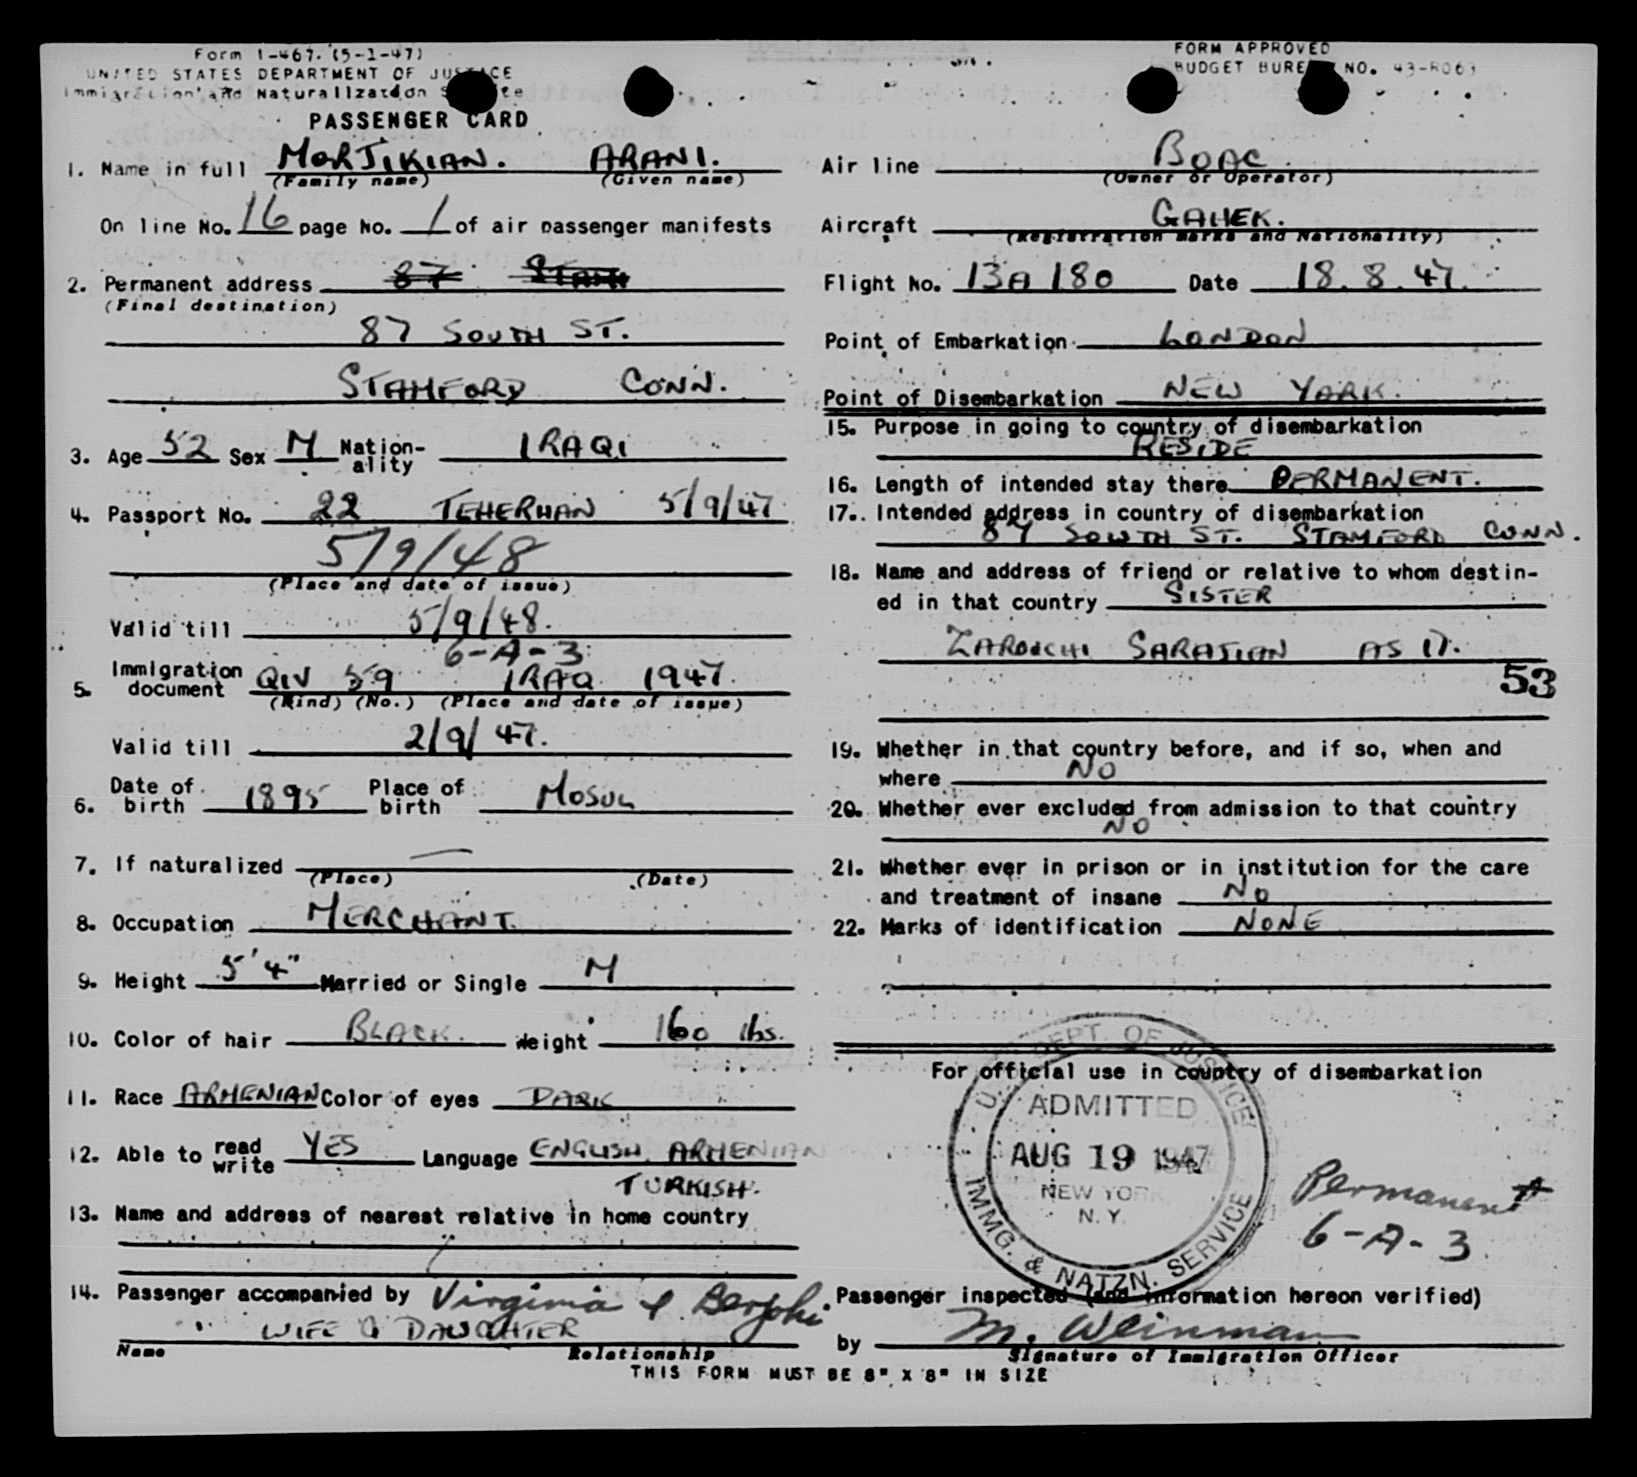 Form I-467. (5-1-47)
UNITED STATES DEPARTMENT OF JUSTICE
Immigration and Naturalization
PASSENGER CARD
FORM APPROVED
BUDGET BUREAU NO. 43-R063
1. Name in full MORJIKIAN. ARANI.
(Family name) (Given name)
On line No. 16 page No. 1 of air passenger manifests
2. Permanent address 87 STAM
(Final destination)
87 SOUTH ST.
STAMFORD CONN.
3. Age 52 Sex M Nationality IRAQI
4. Passport No. 22 TEHERHAN 5/9/47
5/9/48
(Place and date of issue)
Valid till 5/9/48.
6-A-3
5. Immigration document QIV 59 IRAQ 1947.
(Kind) (No.) (Place and date of issue)
Valid till 2/9/47.
6. Date of birth 1895 Place of birth MOSUL
7. If naturalized —
(Place) (Date)
8. Occupation MERCHANT.
9. Height 5'4" Married or Single M
10. Color of hair BLACK. Weight 160 lbs.
11. Race ARMENIAN Color of eyes DARK
12. Able to read write YES Language ENGLISH ARMENIAN
TURKISH.
13. Name and address of nearest relative in home country
14. Passenger accompanied by Virginia & Berjohi
WIFE & DAUGHTER
Name Relationship
Air line BOAC.
(Owner or Operator)
Aircraft GAHEK.
(Registration marks and Nationality)
Flight No. 13A 180 Date 18.8.47.
Point of Embarkation LONDON
Point of Disembarkation NEW YARK.
15. Purpose in going to country of disembarkation
RESIDE
16. Length of intended stay there PERMANENT.
17. Intended address in country of disembarkation
87 SOUTH ST. STAMFORD CONN.
18. Name and address of friend or relative to whom destin-
ed in that country SISTER
ZAROUCHI SARAJIAN AS 17.
53
19. Whether in that country before, and if so, when and
where NO
20. Whether ever excluded from admission to that country
NO
21. Whether ever in prison or in institution for the care
and treatment of insane NO
22. Marks of identification NONE
For official use in country of disembarkation
U.S. DEPT. OF JUSTICE
ADMITTED
AUG 19 1947
NEW YORK
N.Y.
IMMG. & NATZN. SERVICE
Permanent
6-A-3
Passenger inspected (and information hereon verified)
by M. Weinman
Signature of Immigration Officer
THIS FORM MUST BE 8" X 8" IN SIZE